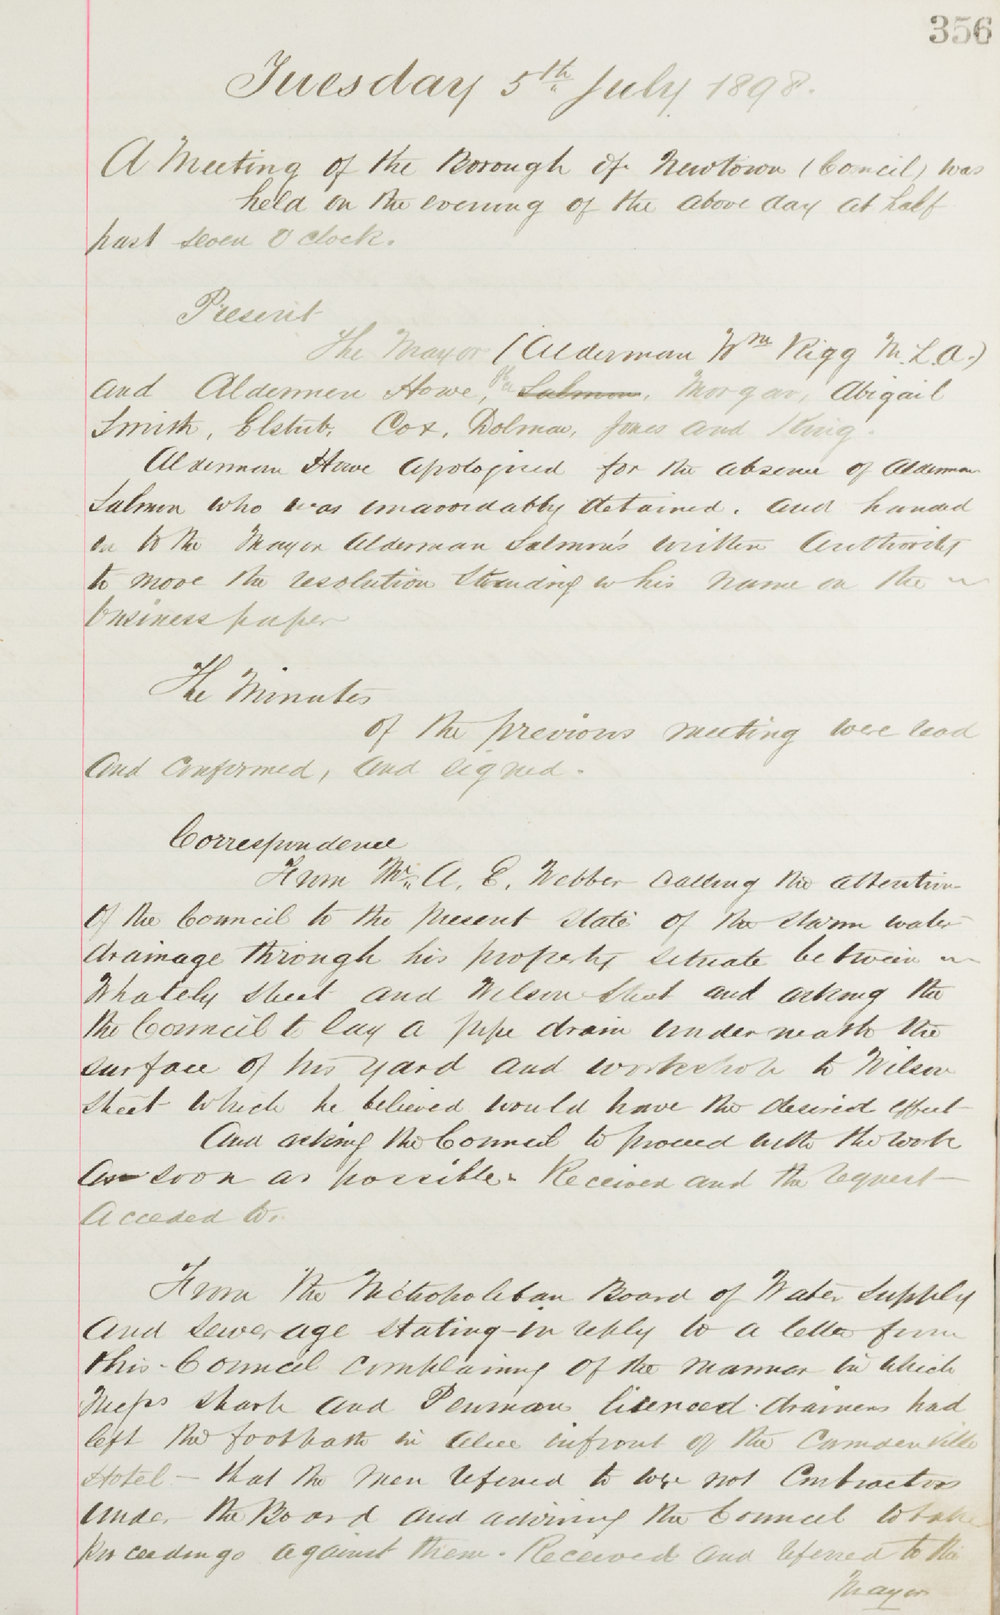 356
Tuesday 5th July 1898.
A Meeting of the Borough of Newtown (Council) was
held on the evening of the above day at half
past seven O clock.
Present
The Mayor (Alderman Wm Rigg M.L.A.)
and Aldermen Howe, Salmon, Morgan, Abigail
Smith, Elstub, Cox, Dolman, Jones and King.
Alderman Howe apologised for the absence of Alderman
Salmon who was unavoidably detained. and handed
in to the Mayor Alderman Salmon's written Authority
to move the resolution standing to his name on the
business paper
The Minutes
of the previous meeting were read
and confirmed, and signed.
Correspondence
From Mr. A. E. Webber calling the attention
of the Council to the present state of the storm water
drainage through his property situate between
Whately Street and Wilson Street and asking the
the Council to lay a pipe drain underneath the
surface of his yard and workshop to Wilson
Street which he believed would have the desired effect
And asking the Council to proceed with the work
as soon as possible. Received and the request
Acceded to.
From the Metropolitan Board of Water Supply
and Sewerage stating in reply to a letter from
this Council complaining of the manner in which
Messrs Shark and Penman licenced drainers had
left the footpath in infront of the Camdenville
Hotel - that the men refered to were not Contractors
under the Board and advising the Council to take
proceedings against them. Received and referred to the
Mayor